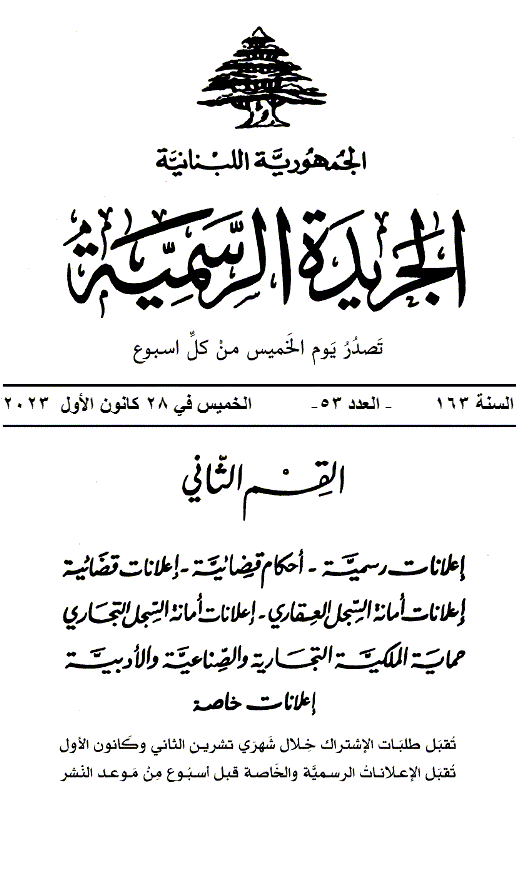 الجمهوريَّة اللبنانيَّة
الجَريدَة الرسَّميَّة
تَصدُرُ يَوم الخَميس منْ كلِّ اسبوع
السنة ١٦٣ - العدد ٥٣- الخميس في ٢٨ كانون الأول ٢٠٢٣
القِسْم الثّاني
إعلانات رسميَّة - أحكام قضائيَّة - إعلانات قضائية
إعلانات أمانة السّجل العقاري - إعلانات أمانة السّجل التجاري
حماية الملكيَّة التجارية والصّناعيَّة والأدبيَّة
إعلانات خاصة
تُقبَل طلبَات الإشتراك خِلال شَهرَي تشرين الثاني وكَانون الأول
تُقبَل الإعلاناتُ الرسميَّة والخَاصة قَبل أسبُوع مِنْ مَوعد النَشر